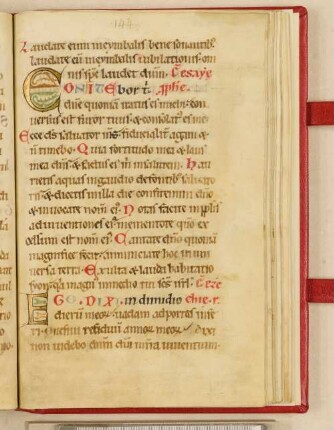 144
Laudate eum incymbalis bene sonantib;
laudate eū incymbalis iubilationis om
nis sp̄s laudet dn̄m. Esaye
CONFITEBOR t̄. p̄phe.
dn̄e quoniā iratus es
uersus est furor tuus & consolat' es me
Ecce d̄s saluator m̄s fiducialit' agam &
n̄ timebo. Quia fortitudo mea & laus
mea dn̄s & factus ē m̄ insalutem. Hau
rietis aquas ingaudio defontib; saluato
ris & dicetis inilla die confitemini dn̄o
& inuocate nom̄ ei'. Notas facite inp̄plis
adinuentiones ei' mementote quō ex
celsum est nom̄ ei'. Cantate dn̄o quoniā
magnifice fecit annunciate hoc in uni
uersa terra. Exulta & lauda habitatio
syon q̄a magn' inmedio tui sc̄s isrl̄. Eze
EGO DIXI. in dimidio chie. r.
dierū meoꝝ uadam adportas infe
ri. Quesiui residuū annoꝝ meoꝝ. Dixi
non uidebo dn̄m dm̄ in terra uiuentium.